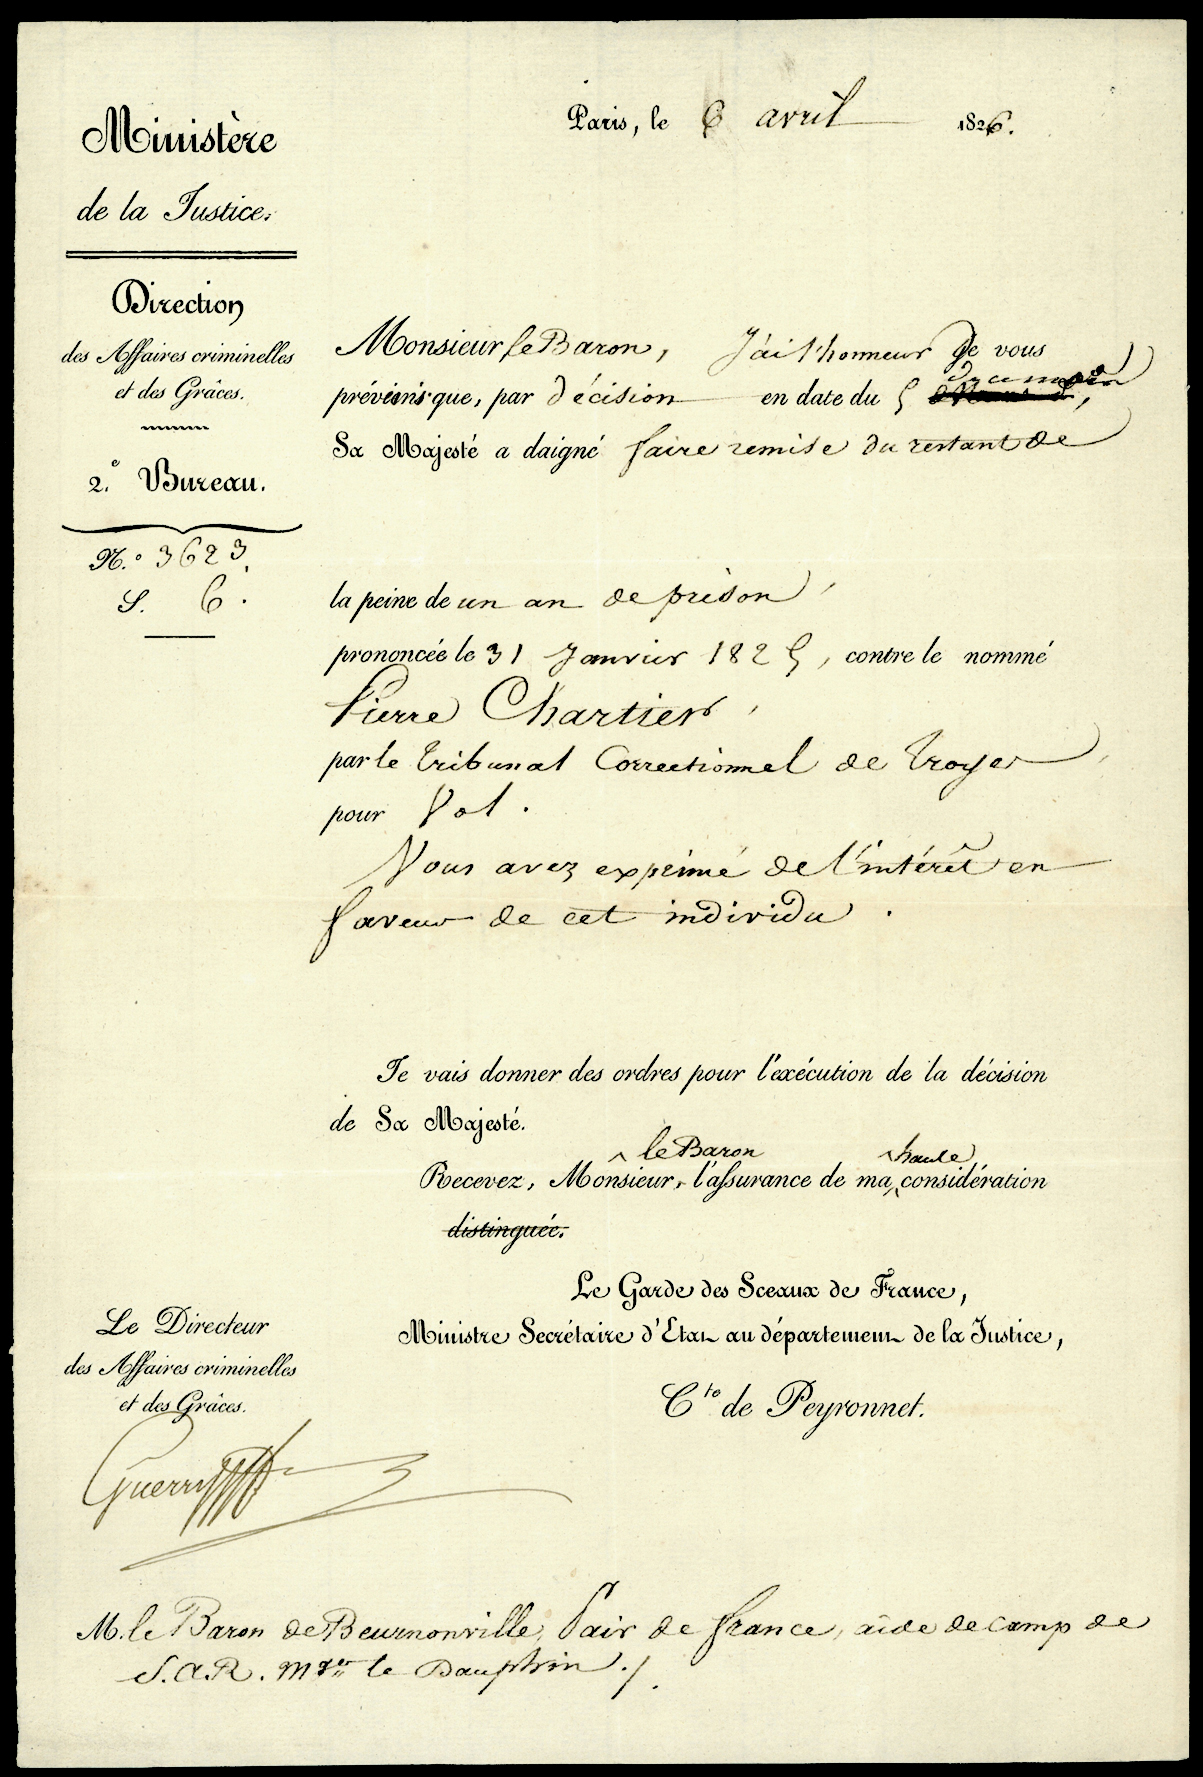 Ministère
de la Justice.
Direction
des Affaires criminelles
et des Grâces.
2.e Bureau.
N.o 3623.
S. 6.
Paris, le 6 avril 1826.
Monsieur le Baron, J'ai l'honneur de vous
prévenir que, par décision en date du 5 du ce mois,
Sa Majesté a daigné faire remise du restant de
la peine de un an de prison,
prononcée le 31 Janvier 1825, contre le nommé
Pierre Chartier,
par le tribunal Correctionnel de Troyes,
pour Vol.
Vous avez exprimé de l'intérêt en
faveur de cet individu.
Je vais donner des ordres pour l'exécution de la décision
de Sa Majesté.
Recevez, Monsieur le Baron, l'assurance de ma haute considération
distinguée.
Le Garde des Sceaux de France,
Ministre Secrétaire d'Etat au département de la Justice,
C.te de Peyronnet.
Le Directeur
des Affaires criminelles
et des Grâces.
M. le Baron de Beurnonville, Pair de france, aide de camp de
S.A.R. Mgr le Dauphin./.